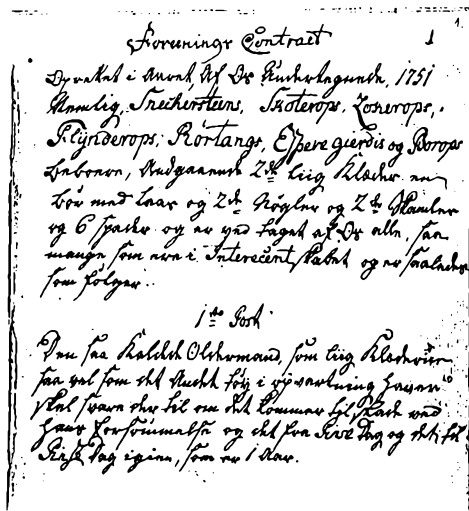 1.
Foreenings Contract 1
Opretet i Aaret, Af Os Undertegnede, 1751
Nemlig, Sneckersteens, Skoterops, Tonerops,
Flynderops, Rørtangs, Esperegierdis og Borops
beboere, Andgaaende 2de liig Klæder en
bør med laas og 2de Nøgler og 2de Skamler
og 6 spader og er ved taget af Os alle, saa
mange som ere i Interecentskabet og er saaledes
som følger.
1ste Post
Den saa Kaldede Oldermand, som liig Klæderne
saa vel som det Andet tøy i opvartning haver
skal svare der til om det kommer til skade ved
hans forsømmelse og det fra Dag og det til
Dag igien, som er 1 Aar.